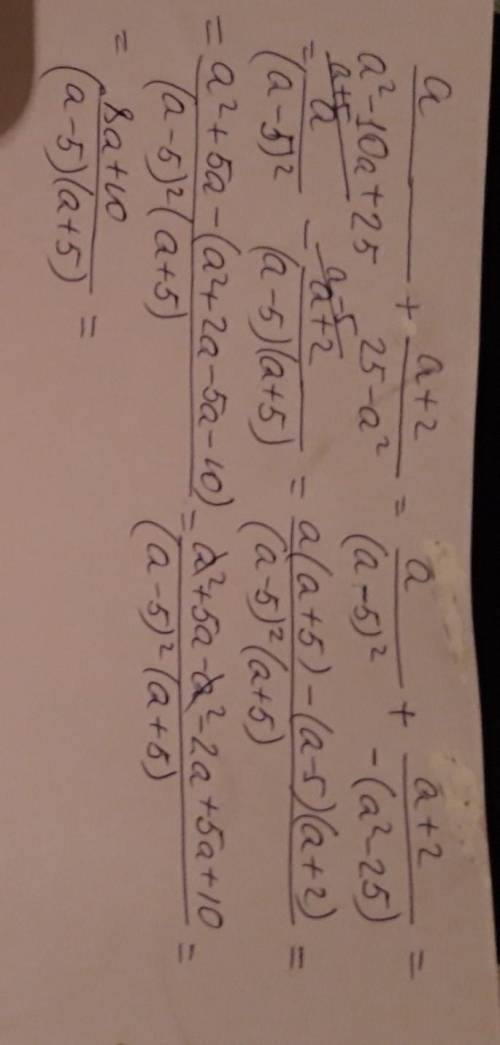 a / (a² - 10a + 25) + (a+2) / (25 - a²) = a / (a-5)² + (a+2) / -(a² - 25) =
= a / (a-5)² - (a+2) / (a-5)(a+5) = a(a+5) - (a-5)(a+2) / (a-5)²(a+5) =
= a² + 5a - (a² + 2a - 5a - 10) / (a-5)²(a+5) = a² + 5a - a² - 2a + 5a + 10 / (a-5)²(a+5) =
= 8a + 10 / (a-5)(a+5) =